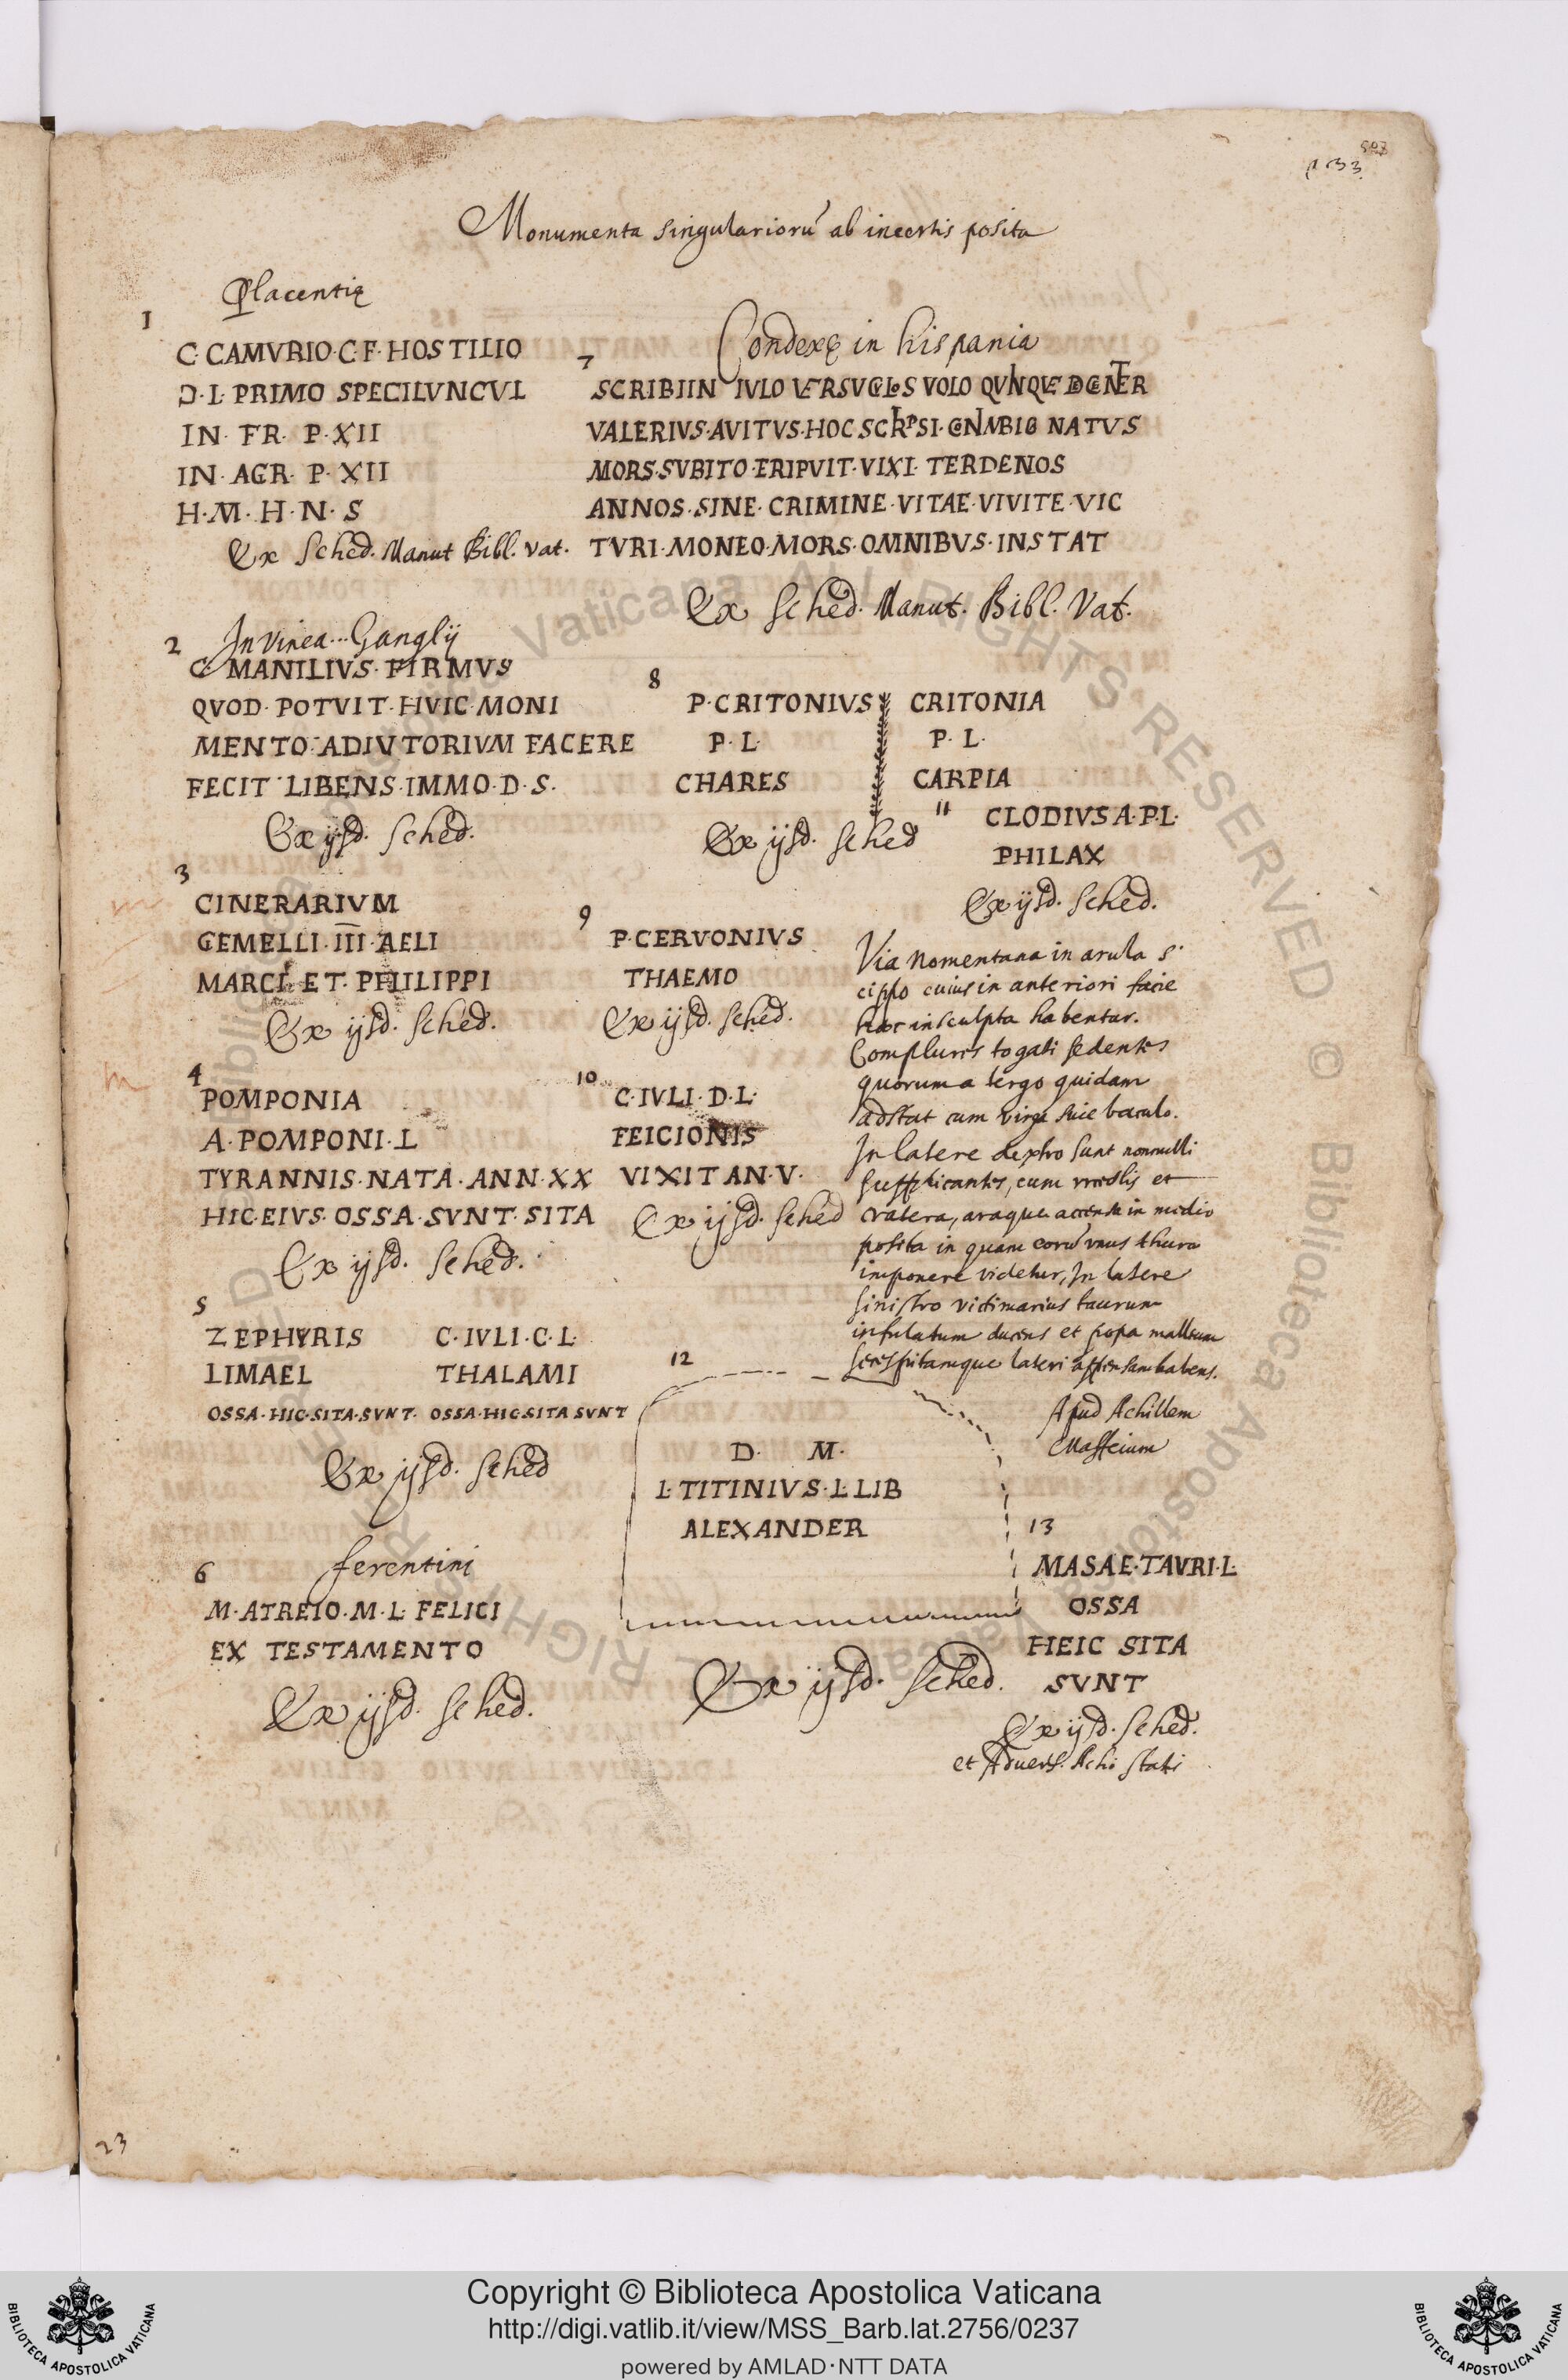 503
p 133
Monumenta singularioru ab incertis posita
Placentię
1
C·CAMVRIO·C·F·HOSTILIO
Ɔ·L·PRIMO SPECILVNCVL
IN·FR·P·XII
IN·AGR·P·XII
H·M·H·N·S
Ex Sched. Manut Bibl. Vat.
2
In vinea...Ganglij
C·MANILIVS·FIRMVS
QVOD·POTVIT·HVIC·MONI
MENTO·ADIVTORIVM FACERE
FECIT LIBENS·IMMO·D·S.
Ex ijsd. Sched.
3
CINERARIVM
GEMELLI·III·AELI
MARCI·ET·PHILIPPI
Ex ijsd. Sched.
4
POMPONIA
A·POMPONI·L
TYRANNIS·NATA·ANN·XX
HIC·EIVS·OSSA·SVNT·SITA
Ex ijsd. Sched.
5
ZEPHYRIS C·IVLI·C·L·
LIMAEL THALAMI
OSSA·HIC·SITA·SVNT· OSSA·HIC·SITA SVNT
Ex ijsd. Sched
6
ferentini
M·ATREIO·M·L·FELICI
EX TESTAMENTO
Ex ijsd. Sched.
7
Condexę in hispania
SCRIBIIN VOLO
VALERIVS·AVITVS·HOC NATVS
MORS·SVBITO·ERIPVIT·VIXI·TERDENOS
ANNOS·SINE·CRIMINE·VITAE·VIVITE·VIC
TVRI·MONEO·MORS·OMNIBVS·INSTAT
Ex Sched. Manut. Bibl. Vat.
8
P·CRITONIVS CRITONIA
P·L P·L·
CHARES CARPIA
Ex ijsd. Sched
9
P·CERVONIVS
THAEMO
Ex ijsd. Sched.
10
C·IVLI·D·L·
FEICIONIS
VIXIT AN·V·
Ex ijsd. Sched
11
CLODIVS A·P·L·
PHILAX
Ex ijsd. Sched.
Via Nomentana in arula s·
cippo cuius in anteriori facie
haec insculpta habentur.
Complures togati sedentes
quorum a tergo quidam
adstat cum virga siue baculo.
In latere dextro sunt nonnulli
supplicantes, cum et
cratera, araque accensa in medio
posita in quam eorū vnus thura
imponere videtur, In latere
sinistro victimarius taurum
infulatum ducens et popa malleum
lateri appensam habens.
Apud Achillem
Maffeium
12
D· M·
L·TITINIVS·L·LIB
ALEXANDER
Ex ijsd. Sched.
13
MASAE·TAVRI·L·
OSSA
HEIC SITA
SVNT
Ex ijsd. Sched.
et Aduers. Achi Stati
23
Copyright © Biblioteca Apostolica Vaticana
http://digi.vatlib.it/view/MSS_Barb.lat.2756/0237
powered by AMLAD·NTT DATA
BIBLIOTECA APOSTOLICA VATICANA
BIBLIOTECA APOSTOLICA VATICANA